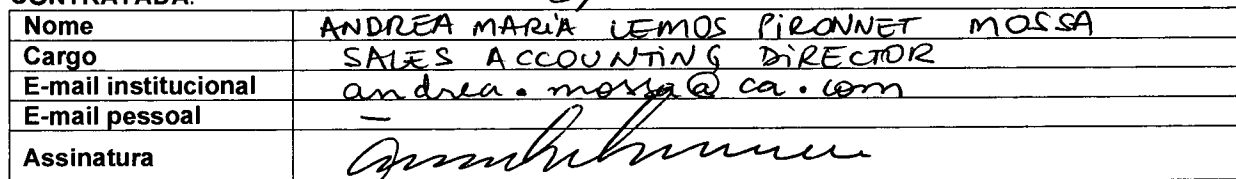 CONTRATADA:
Nome ANDREA MARIA LEMOS PIRONNET MOSSA
Cargo SALES ACCOUNTING DIRECTOR
E-mail institucional andrea.mossa@ca.com
E-mail pessoal —
Assinatura